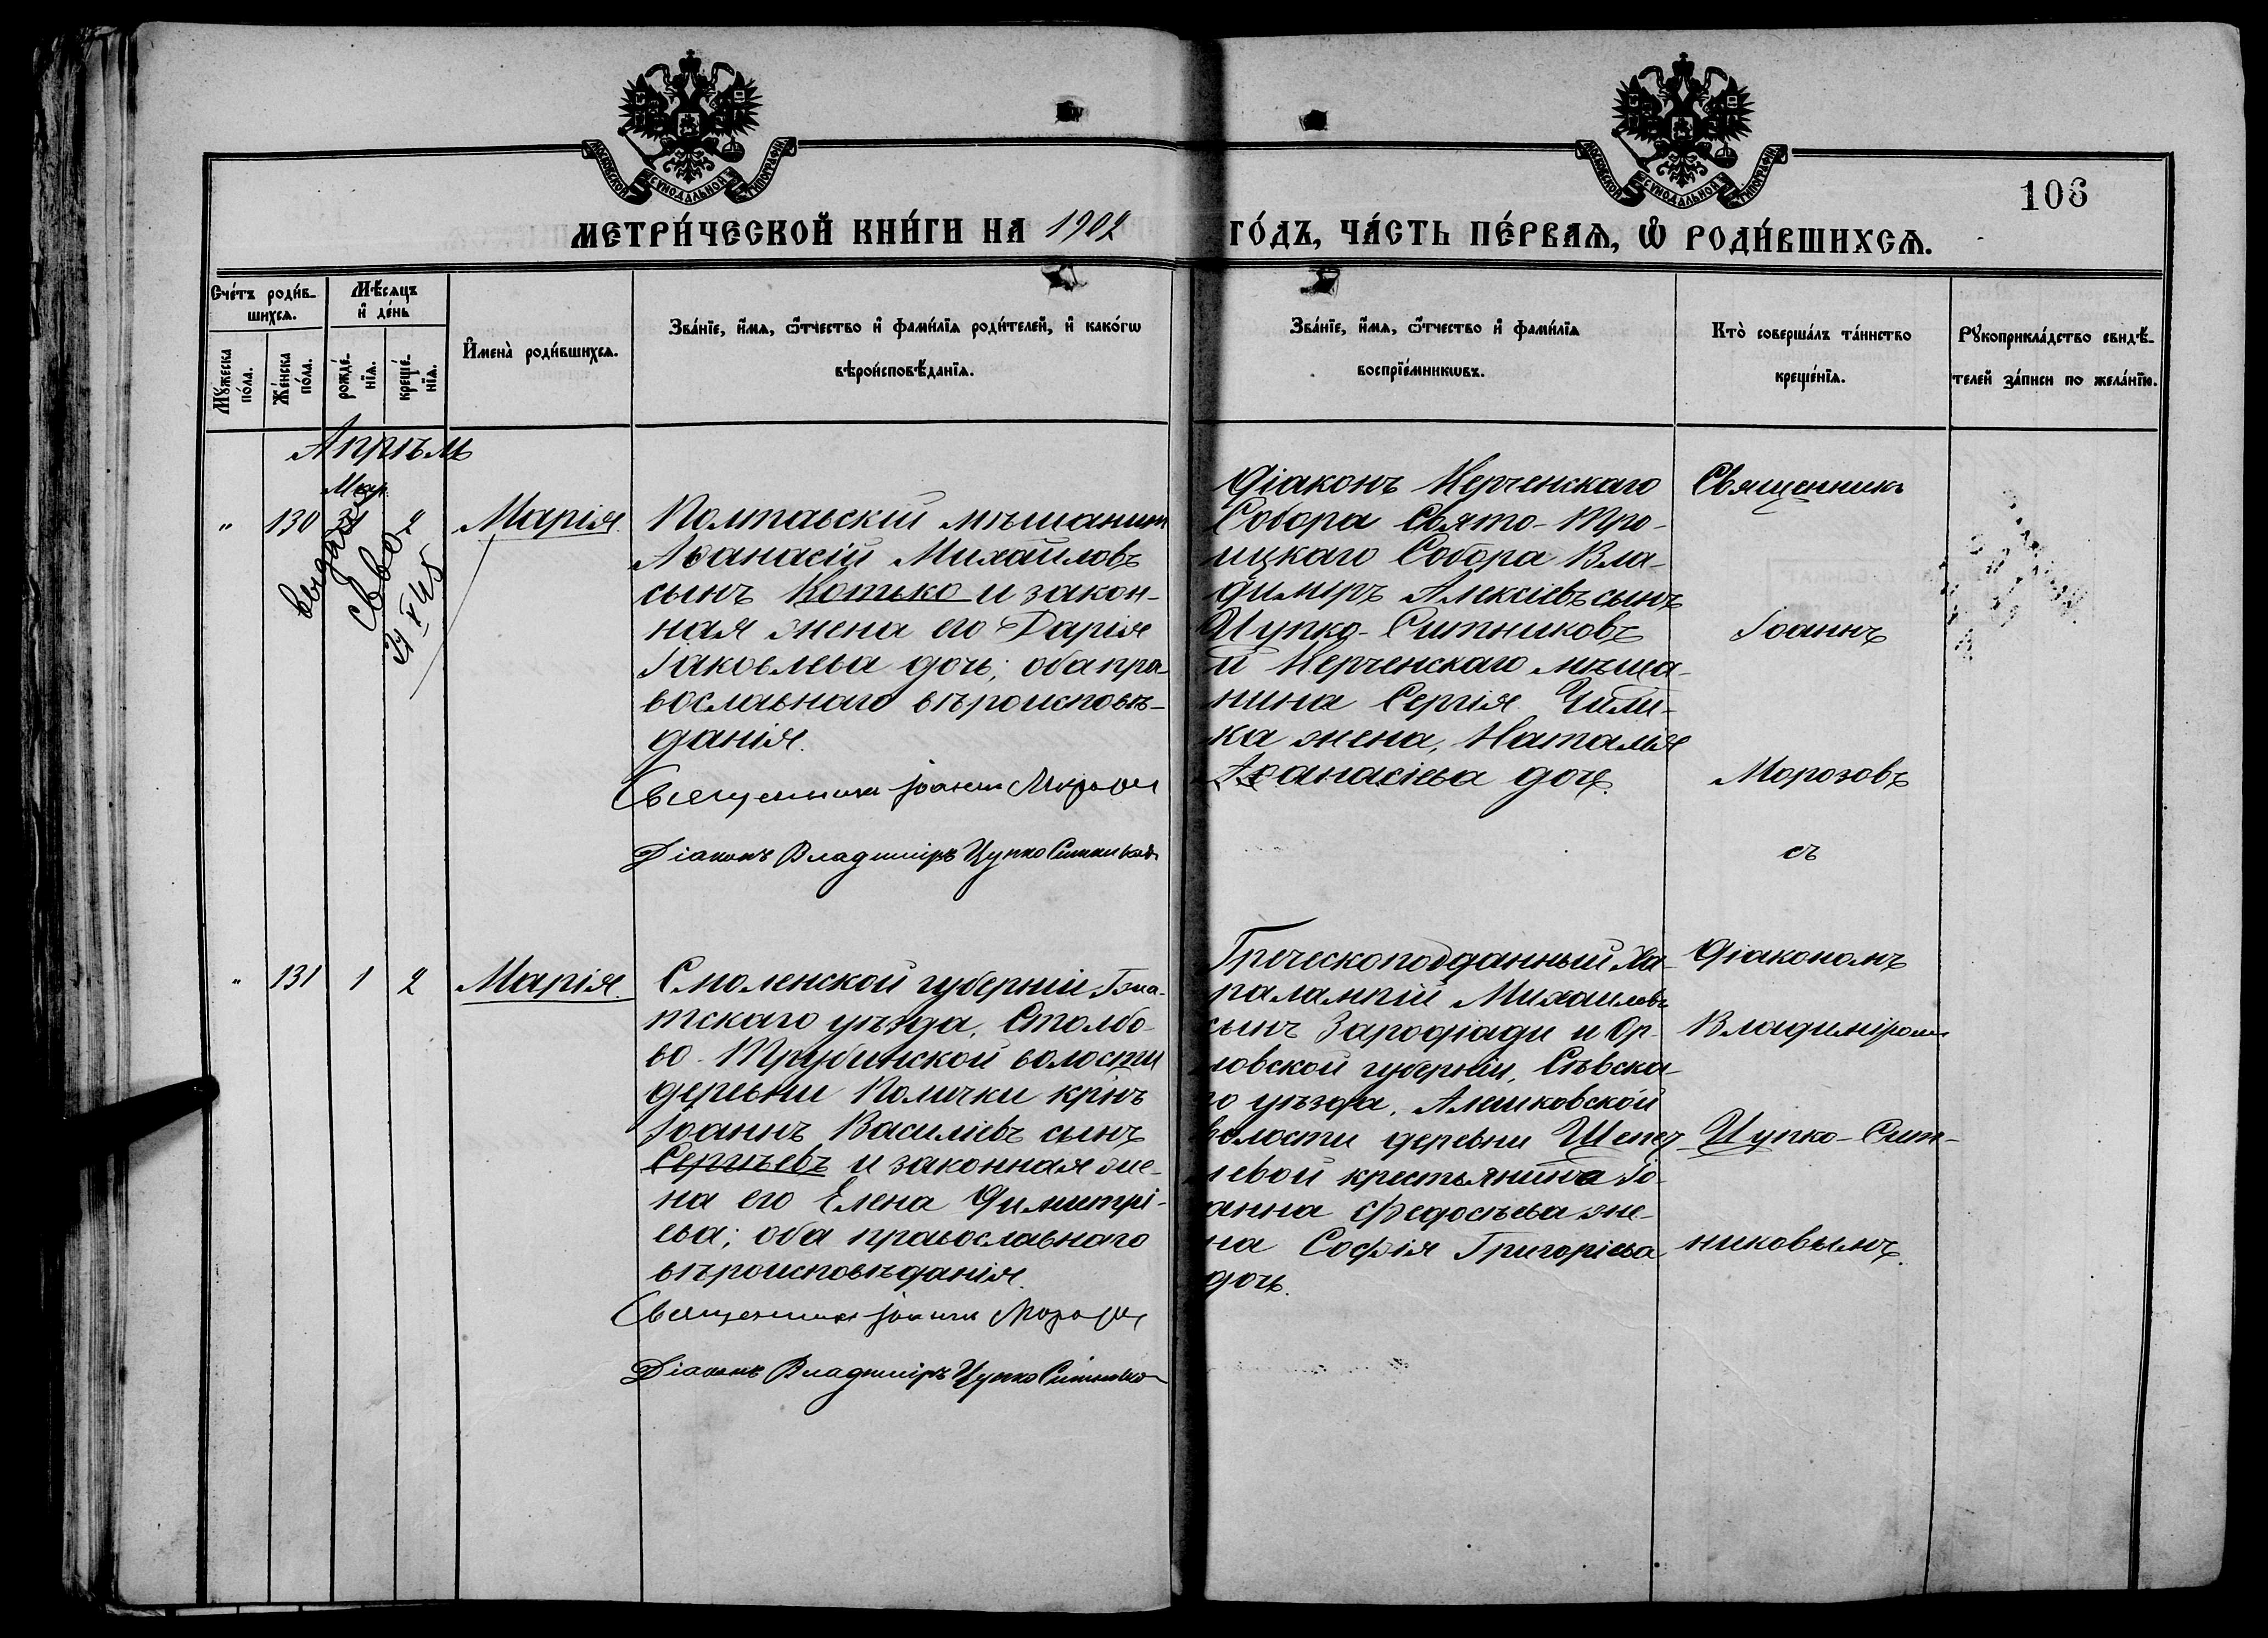 МОСКОВСКОЙ СѴНОДАЛЬНОЙ ТИПОГРАФІИ
МОСКОВСКОЙ СѴНОДАЛЬНОЙ ТИПОГРАФІИ
106
МЕТРИ́ЧЕСКОЙ КНИ́ГИ НА 1902
ГО́ДЪ, ЧА́СТЬ ПЕ́РВАѦ, Ѡ РОДИ́ВШИХСѦ.
Сче́тъ роди́в-
шихсѧ.
Мꙋ́жеска
по́ла.
Же́нска
по́ла.
Мѣ́сѧцъ
и҆ де́нь
рожде́-
нїѧ.
креще́-
нїѧ.
И҆мена̀ роди́вшихсѧ.
Зва́нїе, и҆́мѧ, ѻ҆́тчество и҆ фами́лїѧ роди́телей, и҆ како́гѡ
вѣроисповѣ́данїѧ.
Зва́нїе, и҆́мѧ, ѻ҆́тчество и҆ фами́лїѧ
воспрїе́мникѡвъ.
Кто̀ соверша́лъ та́инство
креще́нїѧ.
Рꙋкоприкла́дство свидѣ́-
телей за́писи по жела́нїю.
Апрѣль
Мар.
" 130 31 2 Марія.
выдано
св-во
Полтавскій мѣщанинъ
Аѳанасій Михайловъ
сынъ Котько и закон-
ная жена его Дарія
Іаковлева дочь; оба пра-
вославнаго вѣроисповѣ-
данія.
Священникъ Іоаннъ Морозовъ
Діаконъ Владиміръ Цупко Ситниковъ
Діаконъ Керченскаго
Собора Свято-Тро-
ицкаго Собора Вла-
диміръ Алексіевъ сынъ
Цупко-Ситниковъ
и Керченскаго мѣща-
нина Сергія Чили-
ка жена, Наталія
Аѳанасіева дочь.
Священникъ
Іоаннъ
Морозовъ
съ
" 131 1 2 Марія.
Смоленской губерніи Гжа-
тскаго уѣзда, Столбо-
во-Трубинской волости
деревни Полички крнъ
Іоаннъ Василіевъ сынъ
Сергѣевъ и законная же-
на его Елена Димитрі-
ева; оба православнаго
вѣроисповѣданія.
Священникъ Іоаннъ Морозовъ
Діаконъ Владиміръ Цупко Ситниковъ
Греческоподданный Ха-
ралампій Михаиловъ
сынъ Зарофіади и Ор-
ловской губерніи, Сѣвска-
го уѣзда, Алешковской
волости деревни
левой крестьянина Іо-
анна Федосѣева же-
на Софія Григоріева
дочь.
Діакономъ
Владиміромъ
Цупко-Сит-
никовымъ.